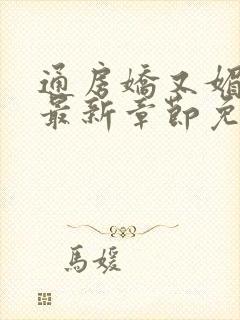 通房嬌又媚
最新章節免
馬媛